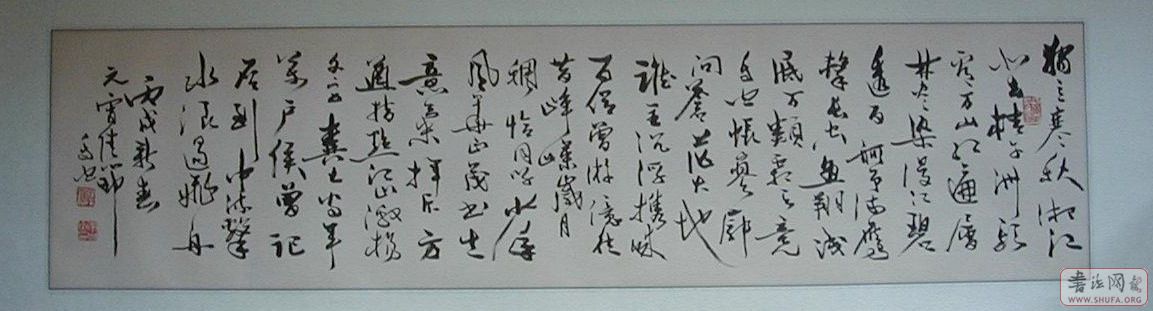 獨立寒秋湘江
北去橘子洲頭
看万山红遍層
林尽染漫江碧
透百舸争流鹰
擊長空魚翔浅
底万類霜天竞
自由怅寥廓
问蒼茫大地
誰主沉浮携来
百侣曾游憶往
昔峥嵘歲月
稠恰同学少年
風华正茂书生
意气揮斥方
遒指点江山激揚
文字糞土当年
萬户侯曾记
否到中流擊
水浪遏飛舟
丙戌新春
元宵佳節
書法网
WWW.SHUFA.ORG